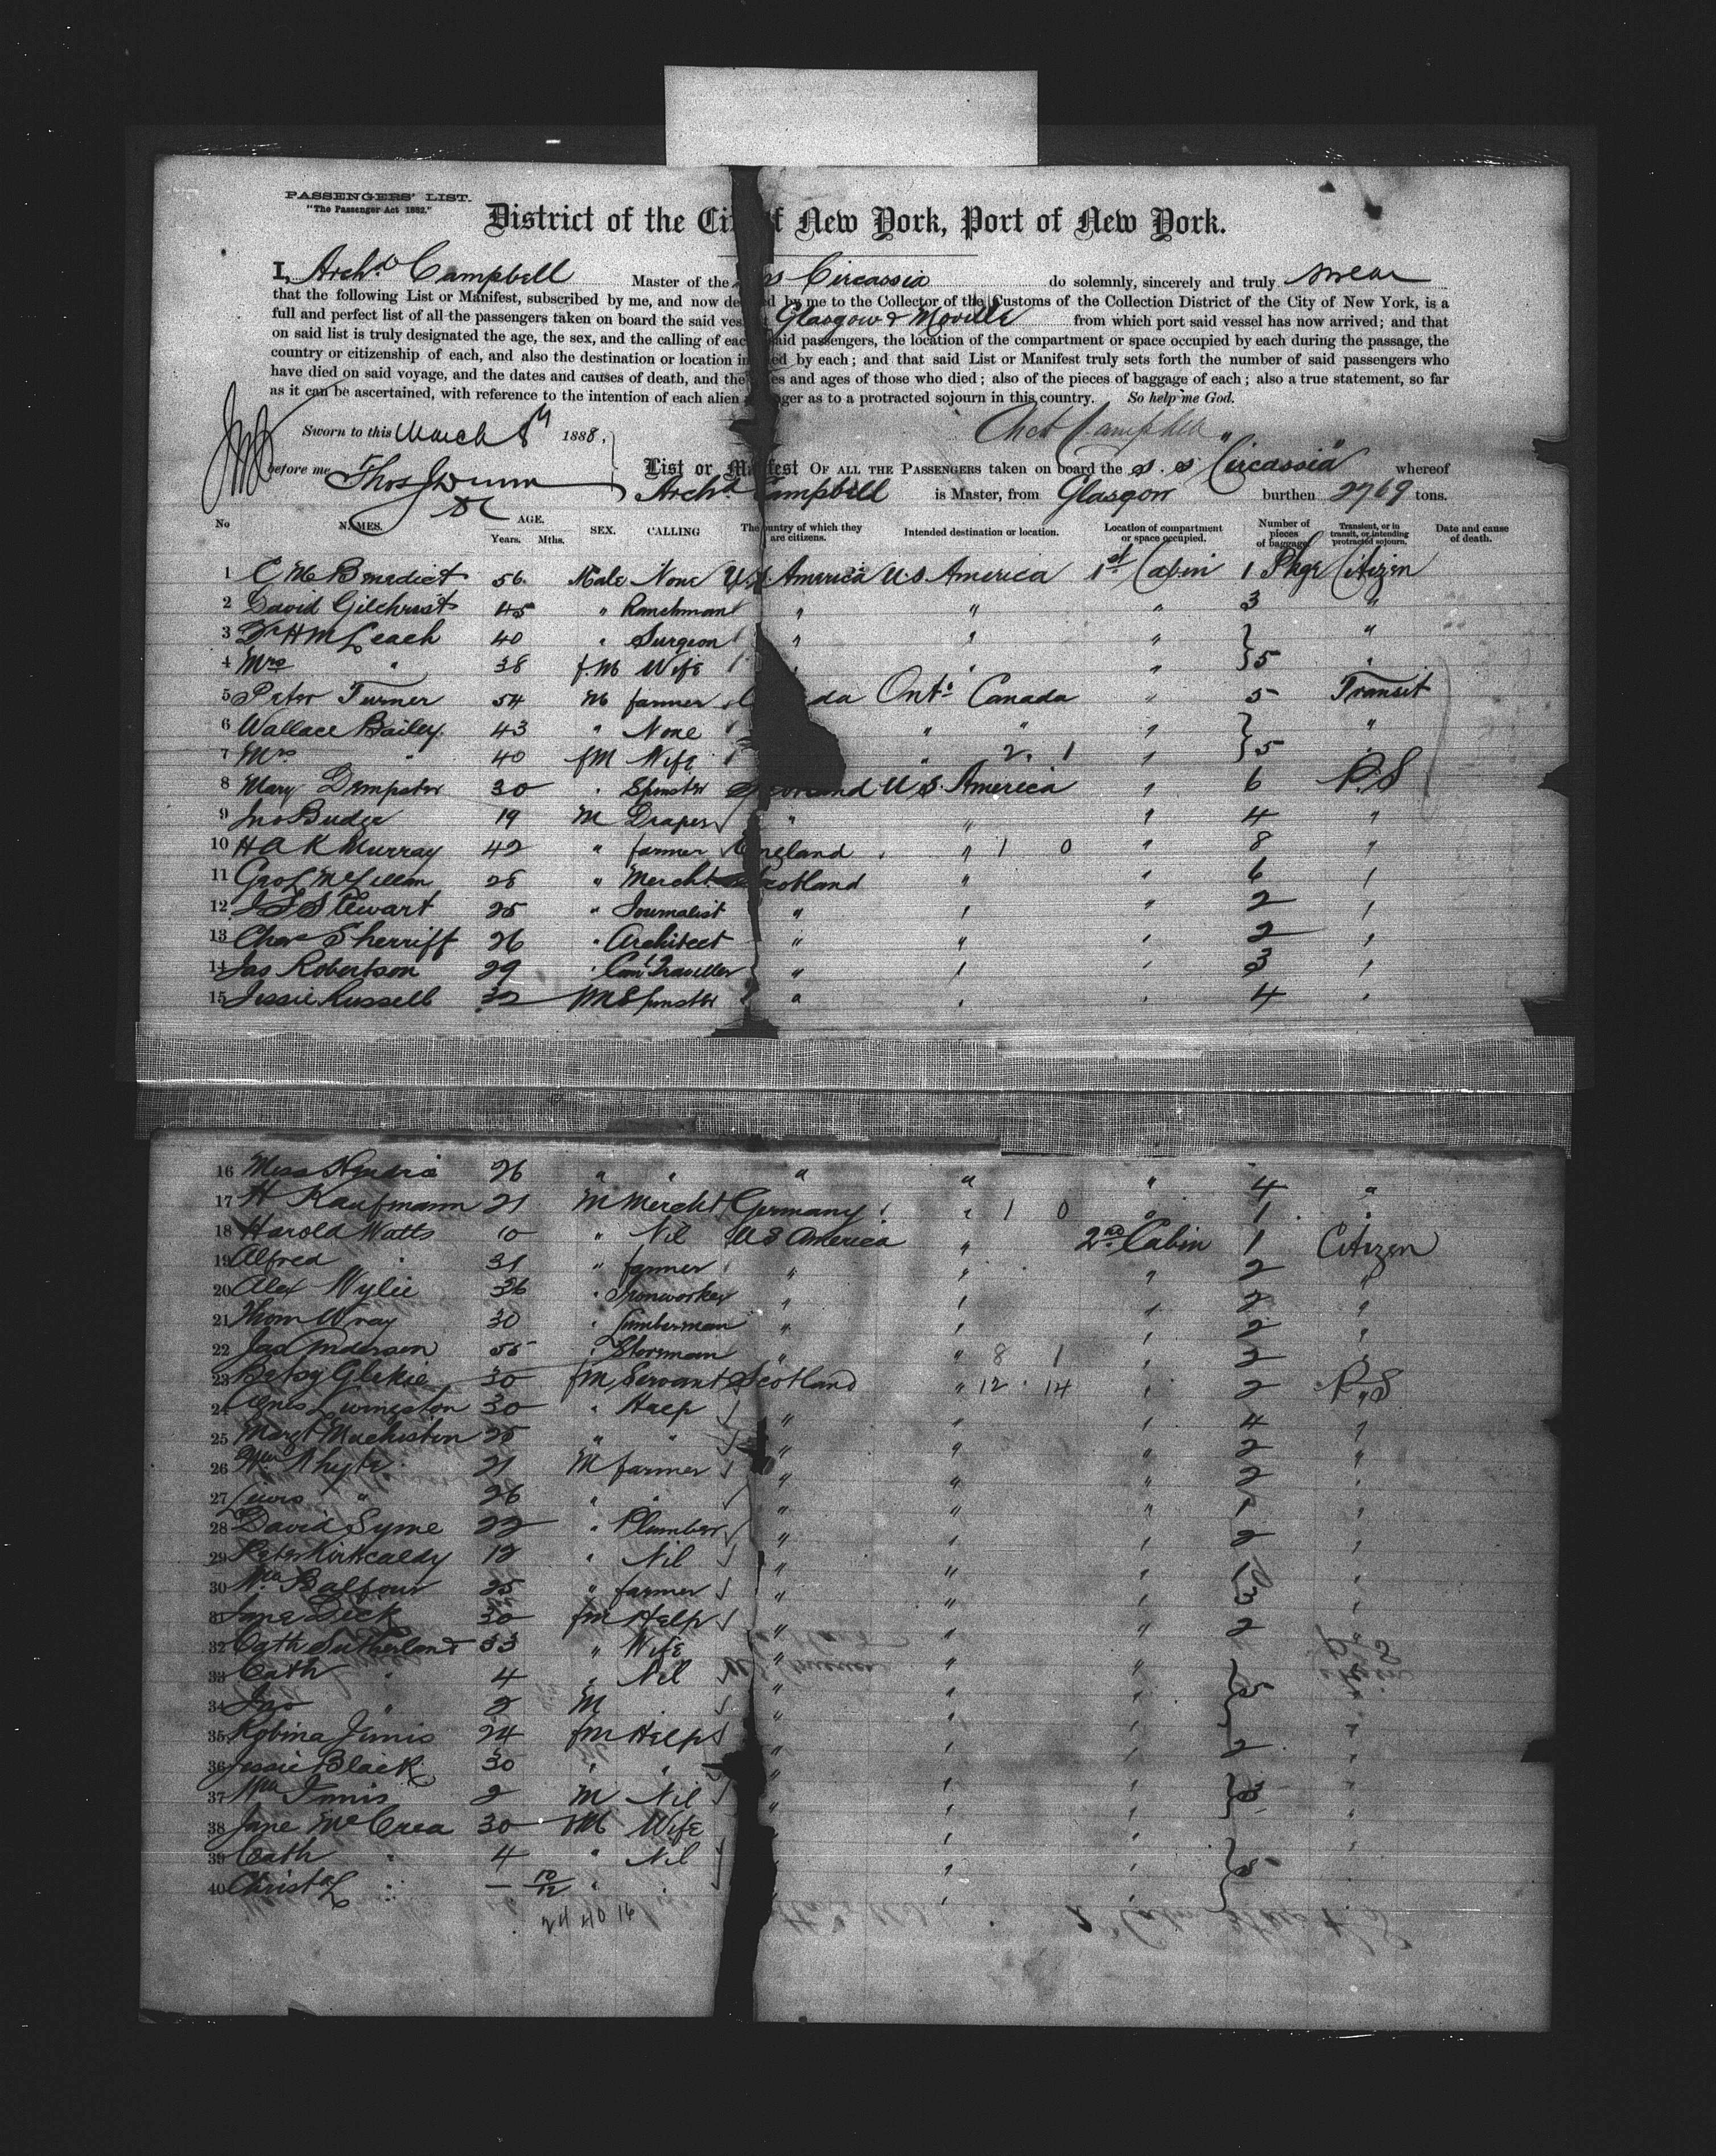 PASSENGERS' LIST.
"The Passenger Act 1882."
District of the Ci f New York, Port of New York.
I, Archd Campbell Master of the ss Circassia do solemnly, sincerely and truly swear
that the following List or Manifest, subscribed by me, and now de ed by me to the Collector of the Customs of the Collection District of the City of New York, is a
full and perfect list of all the passengers taken on board the said ves Glasgow & Moville from which port said vessel has now arrived; and that
on said list is truly designated the age, the sex, and the calling of eac said passengers, the location of the compartment or space occupied by each during the passage, the
country or citizenship of each, and also the destination or location in ed by each; and that said List or Manifest truly sets forth the number of said passengers who
have died on said voyage, and the dates and causes of death, and the es and ages of those who died; also of the pieces of baggage of each; also a true statement, so far
as it can be ascertained, with reference to the intention of each alien nger as to a protracted sojourn in this country. So help me God.
Sworn to this March 1888. Archd Campbell
before me Thos J Dunn
List or Ma fest OF ALL THE PASSENGERS taken on board the s. s. Circassia whereof
Archd Campbell is Master, from Glasgow burthen 2769 tons.
No NAMES. AGE. Years. Mths. SEX. CALLING The country of which they are citizens. Intended destination or location. Location of compartment or space occupied. Number of pieces of baggage Transient, or in transit, or intending protracted sojourn. Date and cause of death.
1 C M Benedict 56. Male None U.S. America U.S. America 1st Cabin 1 Pkge Citizen
2 David Gilchrist 45 " Ranchman " " " 3 "
3 Dr H M Leach 40 " Surgeon " " " "
4 Mrs " 38 f.M Wife " " " 5 "
5 Peter Turner 54 M farmer C da Onto Canada " 5 Transit
6 Wallace Bailey. 43 " None " " "
7 Mrs " 40 fM Wife " 2. 1 " 5 "
8 Mary Dempster 30 " Spinster Scotland U S. America " 6 P.S
9 Jno Budge 19 M Draper " " " 4 "
10 H A K Murray 42 " farmer England " 1 0 " 8 "
11 Geo L McLellan 28 " Mercht Scotland " " 6 "
12 J F Stewart 25 " Journalist " " " 2 "
13 Chas Sherriff 26 " Architect " " " 2 "
14 Jas Robertson 29 " Coml Traveller " " " 3 "
15 Jessie Russell 32 fM Spinster " " " 4 "
16 Miss 26 " " " " " 4 "
17 H Kaufmann 21 M Mercht Germany " 1 0 " 1 "
18 Harold Watts 10 " Nil U S America " 2nd Cabin 1 Citizen
19 Alfred " 31 " farmer " " " 2 "
20 Alex Wylie 36 " Ironworker " " " 2 "
21 Thom Wray 30 " Lumberman " " " 2 "
22 Jas Anderson 55 " Storeman " " 8 1 " 2 "
23 Betsy Glekie 30 fM Servant Scotland " 12 14 " 2 P.S
24 Agnes Livingston 30 " Help " " " 4 "
25 Margt 25 " " " " " 2 "
26 Wm Whyte 21 M farmer " " " 2 "
27 Lewis " 26 " " " " " 1 "
28 David Syme 22 " Plumber " " " 2 "
29 Peter Kirkcaldy 12 " Nil " " " 1 "
30 Wm Balfour 25 " farmer " " " 3 "
31 Jane Dick 30 fM Help " " " 2 "
32 Cath Sutherland 33 " Wife " " "
33 Cath " 4 " Nil " " " 5 "
34 Jno " 2 M " " " "
35 Robina Innis 24 fM Help " " " 2 "
36 Jessie Black 30 " " " " " "
37 Wm Innis 2 M Nil " " " 3 "
38 Jane McCrea 30 fM Wife " " " "
39 Cath " 4 " Nil " " 5
40 " — 10/12 " " " "
24 40 16